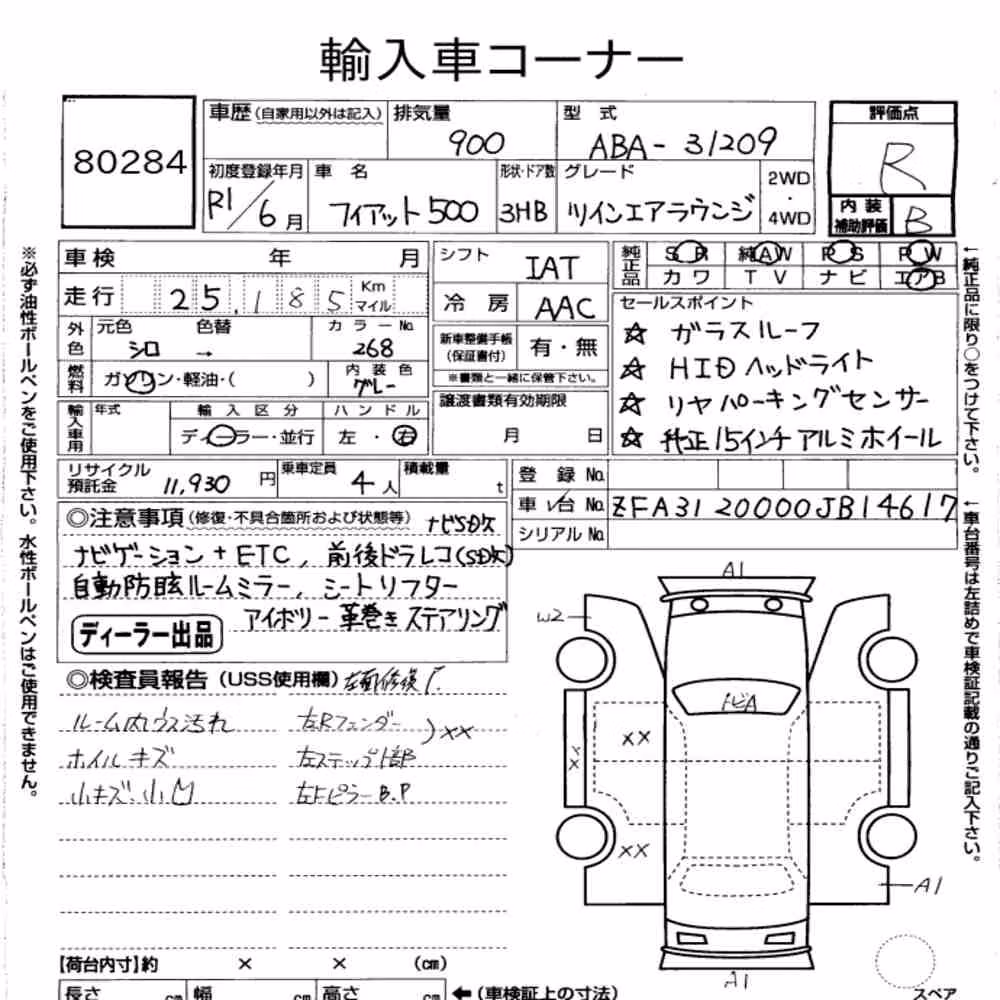 輸入車コーナー
80284
車歴(自家用以外は記入) 排気量 900 型式 ABA-31209
評価点 R
初度登録年月 R1/6月 車名 フィアット500 形状・ドア数 3HB グレード ツインエアラウンジ 2WD・4WD
内装補助評価 B
車検 年 月
走行 25,185 Km マイル
外色 元色 シロ 色替 → カラーNo. 268
燃料 ガソリン・軽油・( ) 内装色 グレー
輸入車用 年式 輸入区分 ディーラー・並行 ハンドル 左・右
シフト IAT
冷房 AAC
新車整備手帳(保証書付) 有・無
※書類と一緒に保管下さい。
譲渡書類有効期限
月 日
純正品 SR 純AW PS PW
カワ TV ナビ エアB
セールスポイント
☆ ガラスルーフ
☆ HIDヘッドライト
☆ リヤパーキングセンサー
☆ 純正15インチアルミホイール
リサイクル預託金 11,930円 乗車定員 4人 積載量 t
登録No.
車台No. ZFA3120000JB14617
シリアルNo.
◎注意事項(修復・不具合箇所および状態等) ナビSD欠
ナビゲーション+ETC, 前後ドラレコ(SD欠)
自動防眩ルームミラー, シートリフター
ディーラー出品 アイボリー革巻きステアリング
◎検査員報告(USS使用欄)
ルーム内ウス汚れ 左Rフェンダー
ホイルキズ 左ステップ部 )××
小キズ、小凹 左Fピラー B.P
A1
W2
トビA
××
××
××
A1
A1
スペア
【荷台内寸】約 × × (cm)
長さ cm 幅 cm 高さ cm ←(車検証上の寸法)
※必ず油性ボールペンをご使用下さい。水性ボールペンはご使用できません。
←純正品に限り○をつけて下さい。
←車台番号は左詰めで車検証記載の通りご記入下さい。